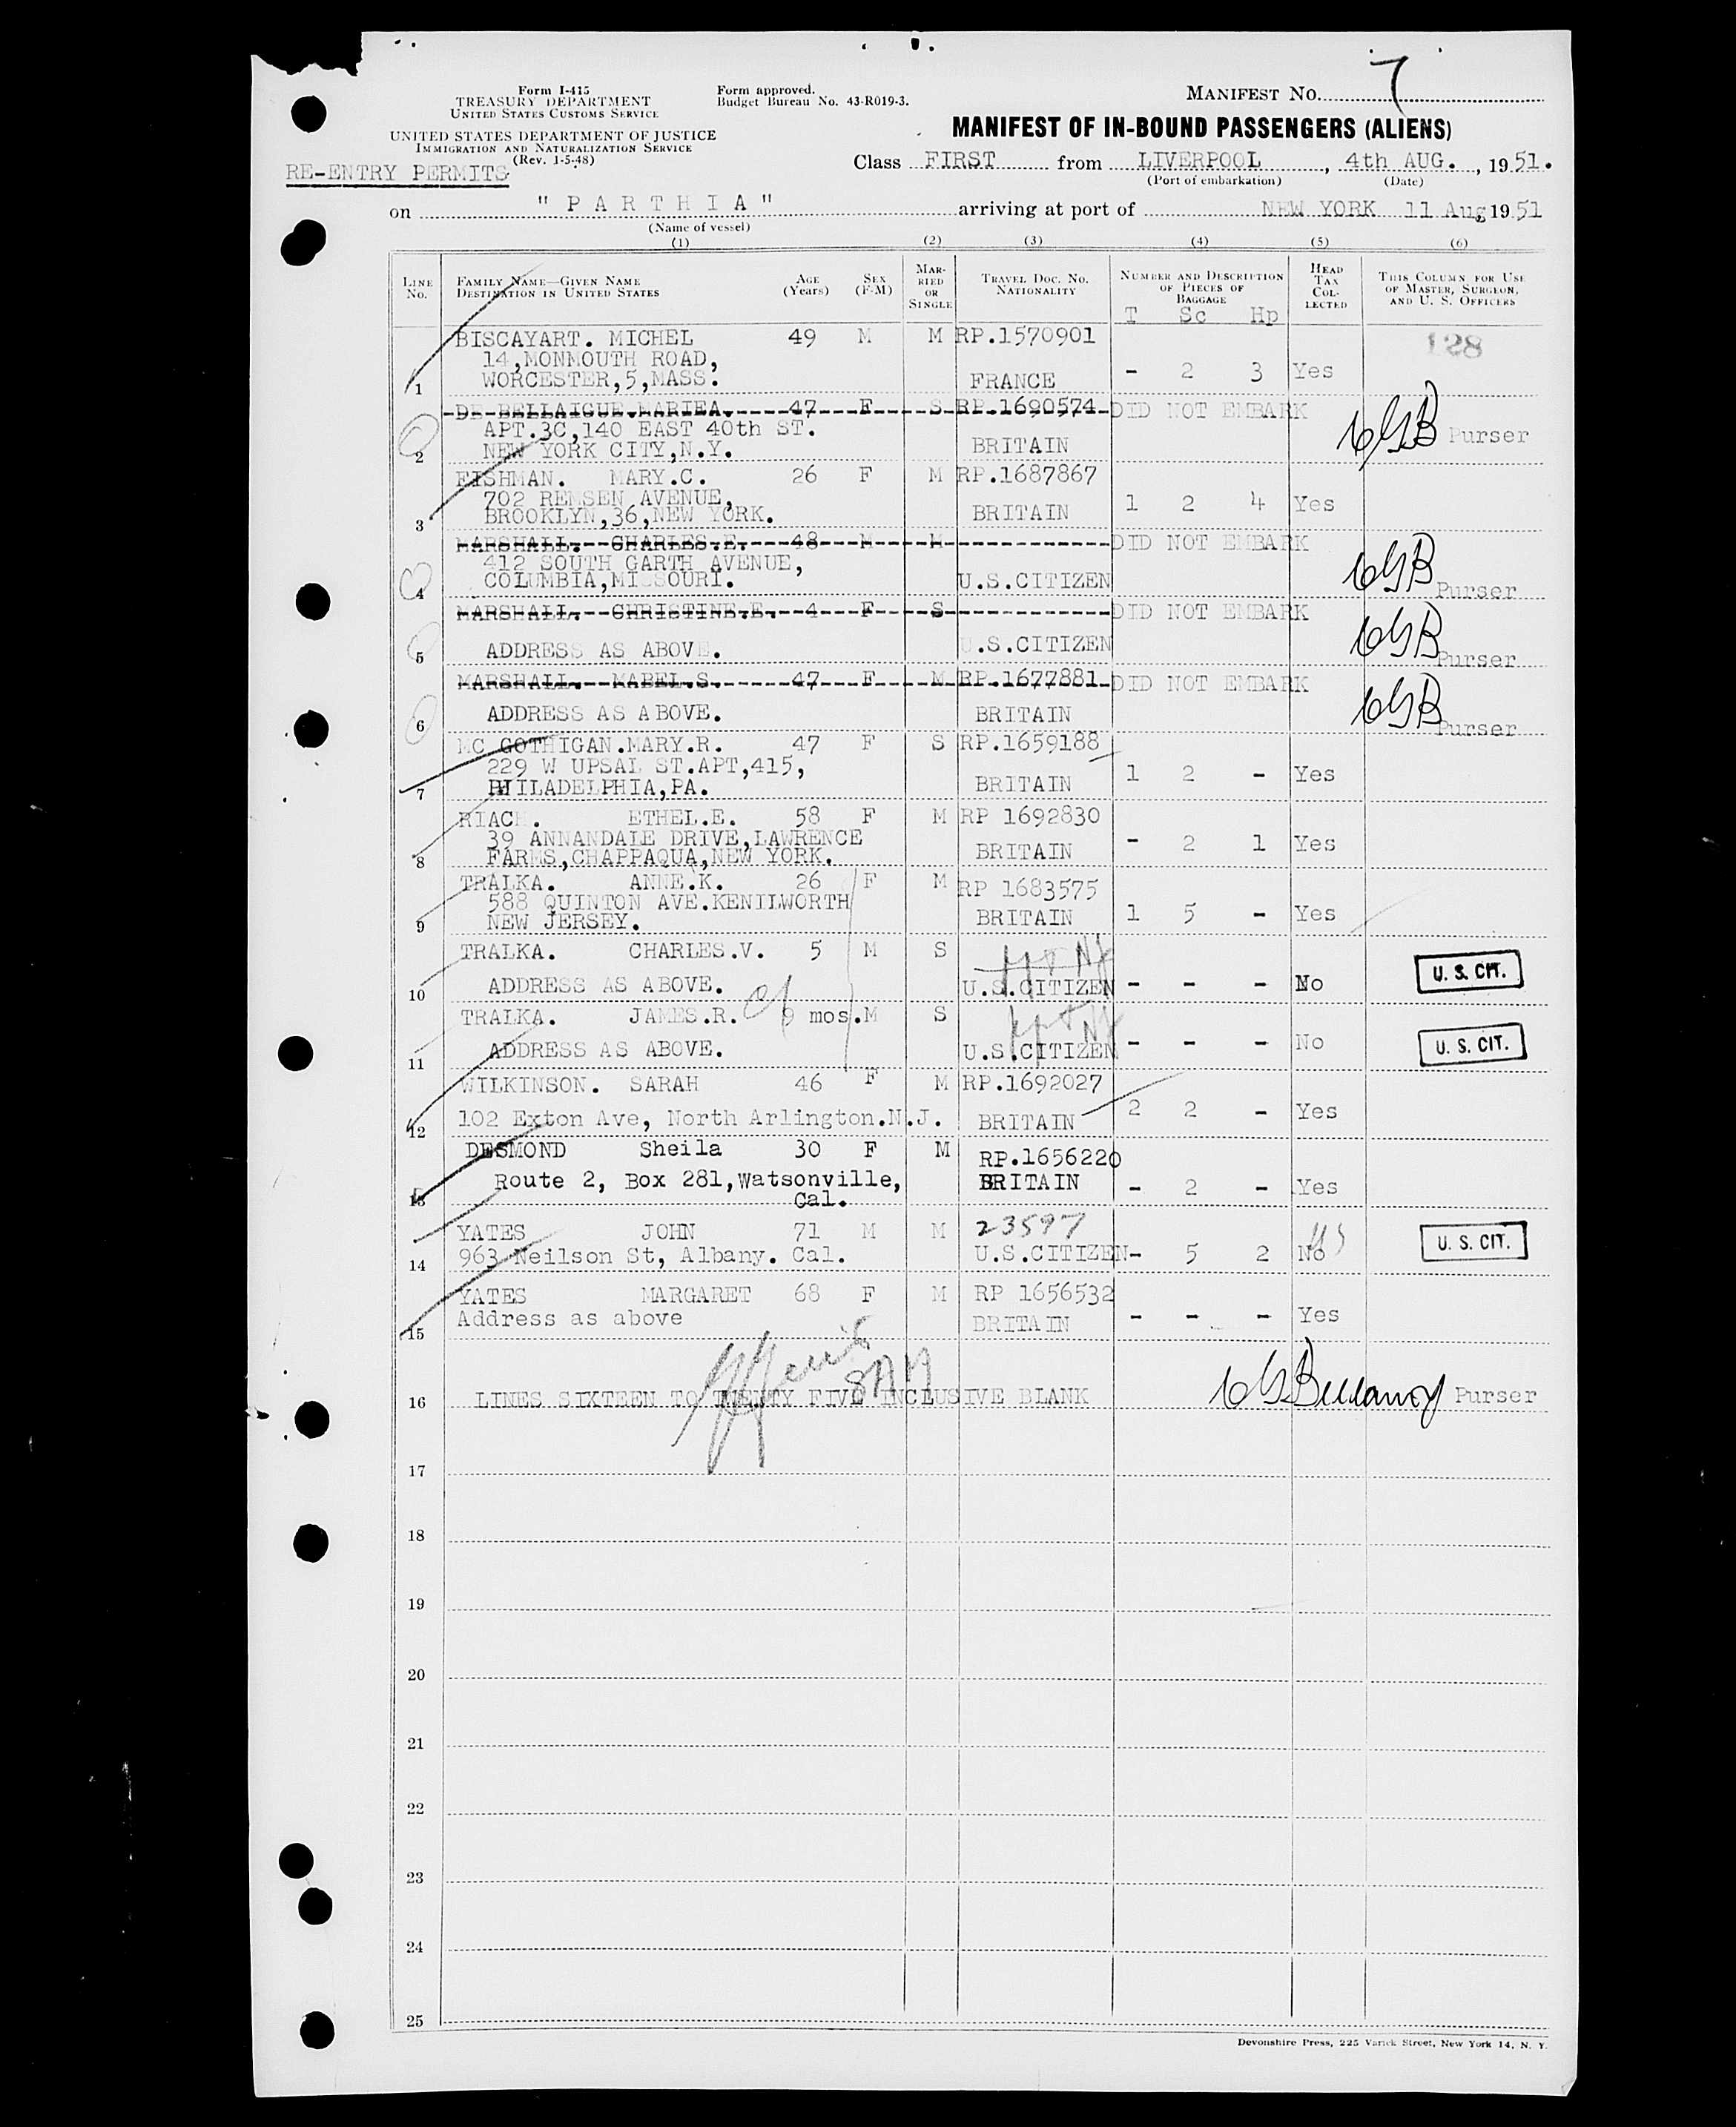 Form I-415
TREASURY DEPARTMENT
UNITED STATES CUSTOMS SERVICE
UNITED STATES DEPARTMENT OF JUSTICE
IMMIGRATION AND NATURALIZATION SERVICE
(Rev. 1-5-48)
RE-ENTRY PERMITS
Form approved.
Budget Bureau No. 43-R019-3.
MANIFEST NO. 7
MANIFEST OF IN-BOUND PASSENGERS (ALIENS)
Class FIRST from LIVERPOOL, 4th AUG., 1951.
(Port of embarkation) (Date)
on "PARTHIA" arriving at port of NEW YORK 11 Aug 1951
(Name of vessel)
(1) (2) (3) (4) (5) (6)
LINE NO. FAMILY NAME—GIVEN NAME DESTINATION IN UNITED STATES AGE (Years) SEX (F-M) MARRIED OR SINGLE TRAVEL DOC. NO. NATIONALITY NUMBER AND DESCRIPTION OF PIECES OF BAGGAGE HEAD TAX COLLECTED THIS COLUMN FOR USE OF MASTER, SURGEON, AND U. S. OFFICERS
T Sc Hp
BISCAYART. MICHEL 49 M M RP.1570901 128
14,MONMOUTH ROAD,
WORCESTER,5,MASS. FRANCE - 2 3 Yes
1
DE BELLAIGUE.MARIEA. 47 F S RP.1690574 DID NOT EMBARK
APT.3C,140 EAST 40th ST. CGB Purser
NEW YORK CITY,N.Y. BRITAIN
2
FISHMAN. MARY.C. 26 F M RP.1687867
702 REMSEN AVENUE, 1 2 4 Yes
BROOKLYN,36,NEW YORK. BRITAIN
3
MARSHALL. CHARLES.E. 48 M M DID NOT EMBARK
412 SOUTH GARTH AVENUE,
COLUMBIA,MISSOURI. U.S.CITIZEN CGB Purser
4
MARSHALL. CHRISTINE.E. 4 F S DID NOT EMBARK
5 ADDRESS AS ABOVE. U.S.CITIZEN CGB Purser
MARSHALL. MABEL.S. 47 F M RP.1677881 DID NOT EMBARK
6 ADDRESS AS ABOVE. BRITAIN CGB Purser
MC GOTHIGAN.MARY.R. 47 F S RP.1659188
229 W UPSAL ST.APT,415, 1 2 - Yes
7 PHILADELPHIA,PA. BRITAIN
RIACH. ETHEL.E. 58 F M RP 1692830
39 ANNANDALE DRIVE,LAWRENCE - 2 1 Yes
8 FARMS,CHAPPAQUA,NEW YORK. BRITAIN
TRALKA. ANNE.K. 26 F M RP 1683575
588 QUINTON AVE.KENILWORTH
9 NEW JERSEY. BRITAIN 1 5 - Yes
TRALKA. CHARLES.V. 5 M S
10 ADDRESS AS ABOVE. U.S.CITIZEN - - - No U. S. CIT.
TRALKA. JAMES.R. 9 mos. M S
11 ADDRESS AS ABOVE. U.S.CITIZEN - - - No U. S. CIT.
WILKINSON. SARAH 46 F M RP.1692027
12 102 Exton Ave, North Arlington.N.J. BRITAIN 2 2 - Yes
DESMOND Sheila 30 F M RP.1656220
13 Route 2, Box 281,Watsonville, BRITAIN - 2 - Yes
Cal.
YATES JOHN 71 M M 23597
14 963 Neilson St, Albany. Cal. U.S.CITIZEN - 5 2 No U. S. CIT.
YATES MARGARET 68 F M RP 1656532
15 Address as above BRITAIN - - - Yes
16 LINES SIXTEEN TO TWENTY FIVE INCLUSIVE BLANK Purser
17
18
19
20
21
22
23
24
25
Devonshire Press, 225 Varick Street, New York 14, N. Y.